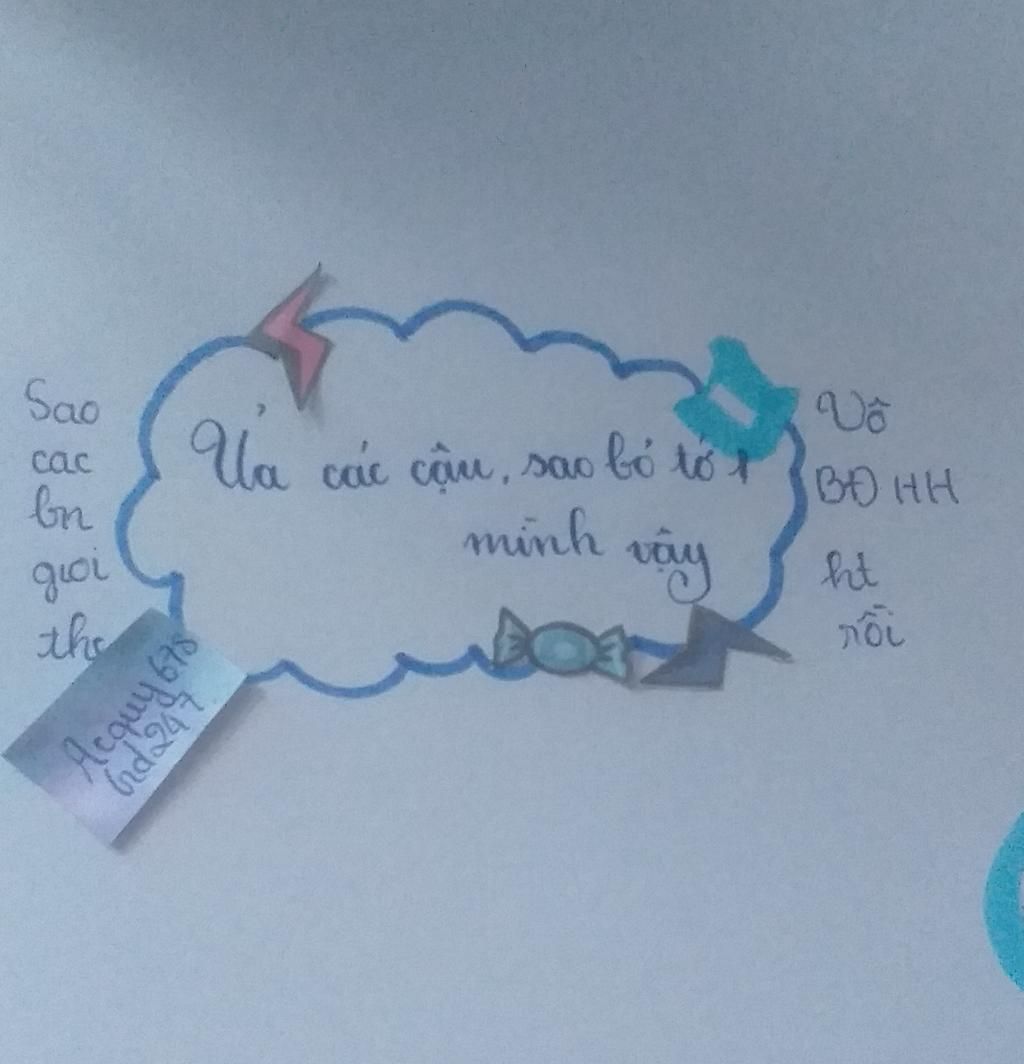 Sao
cac
bn
giơi
thê
Ủa các cậu, sao bỏ tớ 1
mình vậy
Vô
BĐ HH
ht
rồi
Acquy678
bd247